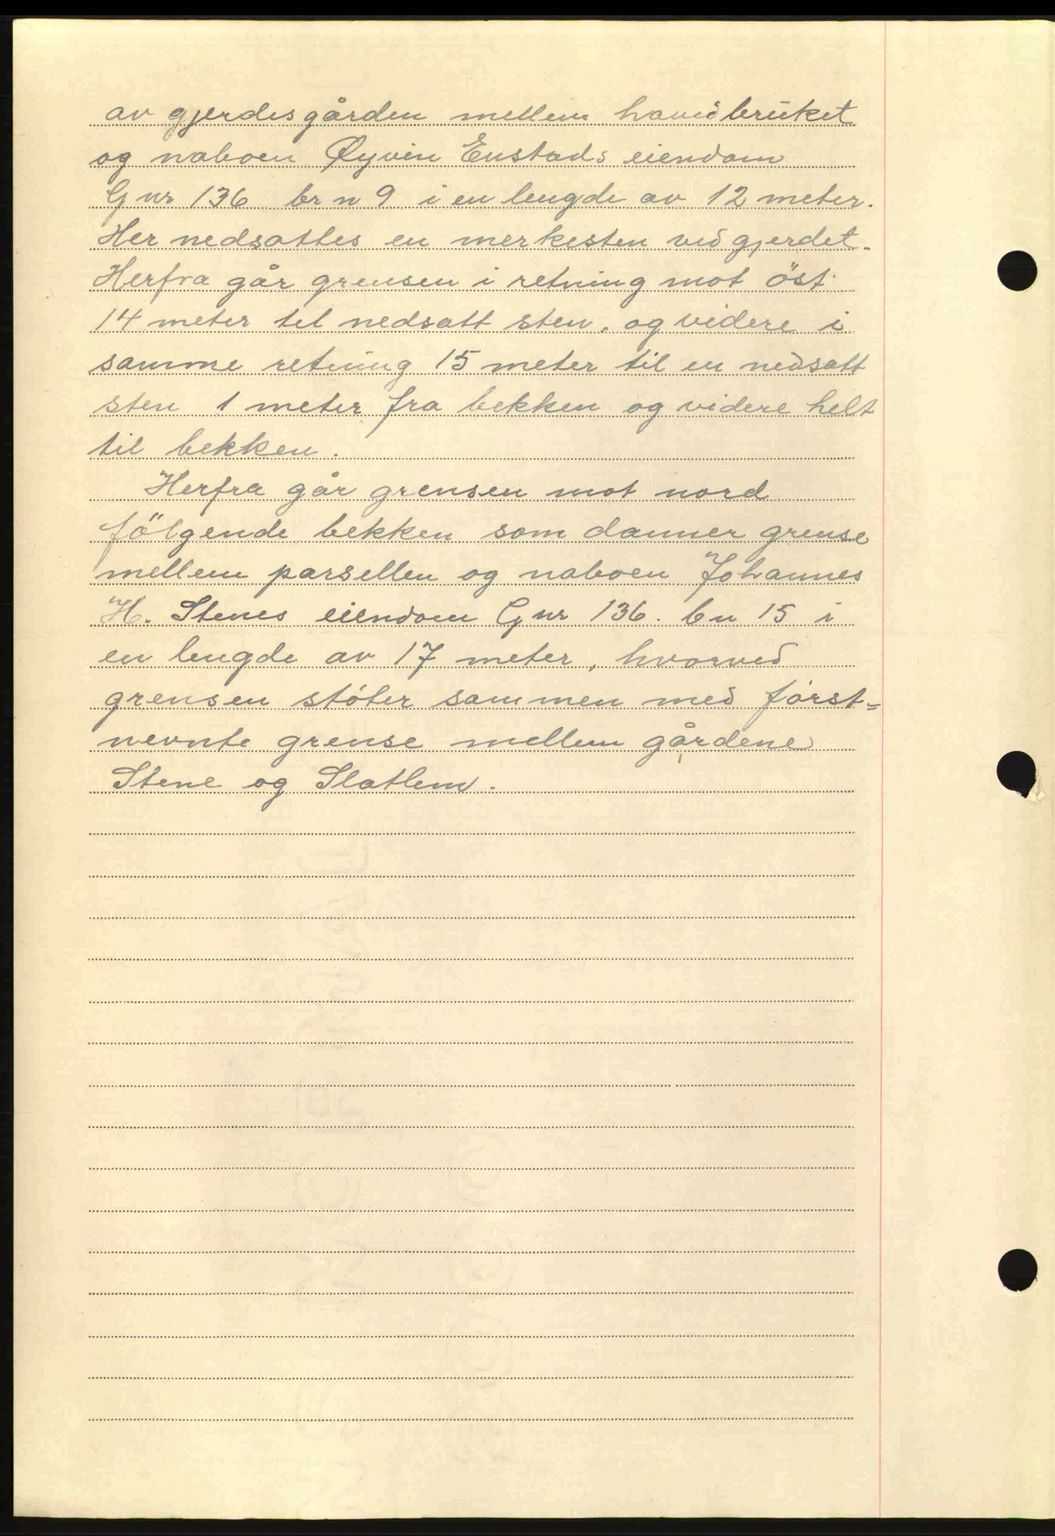 av gjerdesgården mellem hovedbruket
og naboen Øyvin Enstads eiendom
Gnr 136 br n 9 i en lengde av 12 meter.
Her nedsattes en merkesten ved gjerdet.
Herfra går grensen i retning mot öst
14 meter til nedsatt sten, og videre i
samme retning 15 meter til en nedsatt
sten 1 meter fra bekken og videre helt
til bekken.
Herfra går grensen mot nord
fölgende bekken som danner grense
mellem parsellen og naboen Johannes
H. Stenes eiendom Gnr 136. bn 15 i
en lengde av 17 meter, hvorved
grensen stöter sammen med först=
nevnte grense mellem gårdene
Stene og Slatlem.